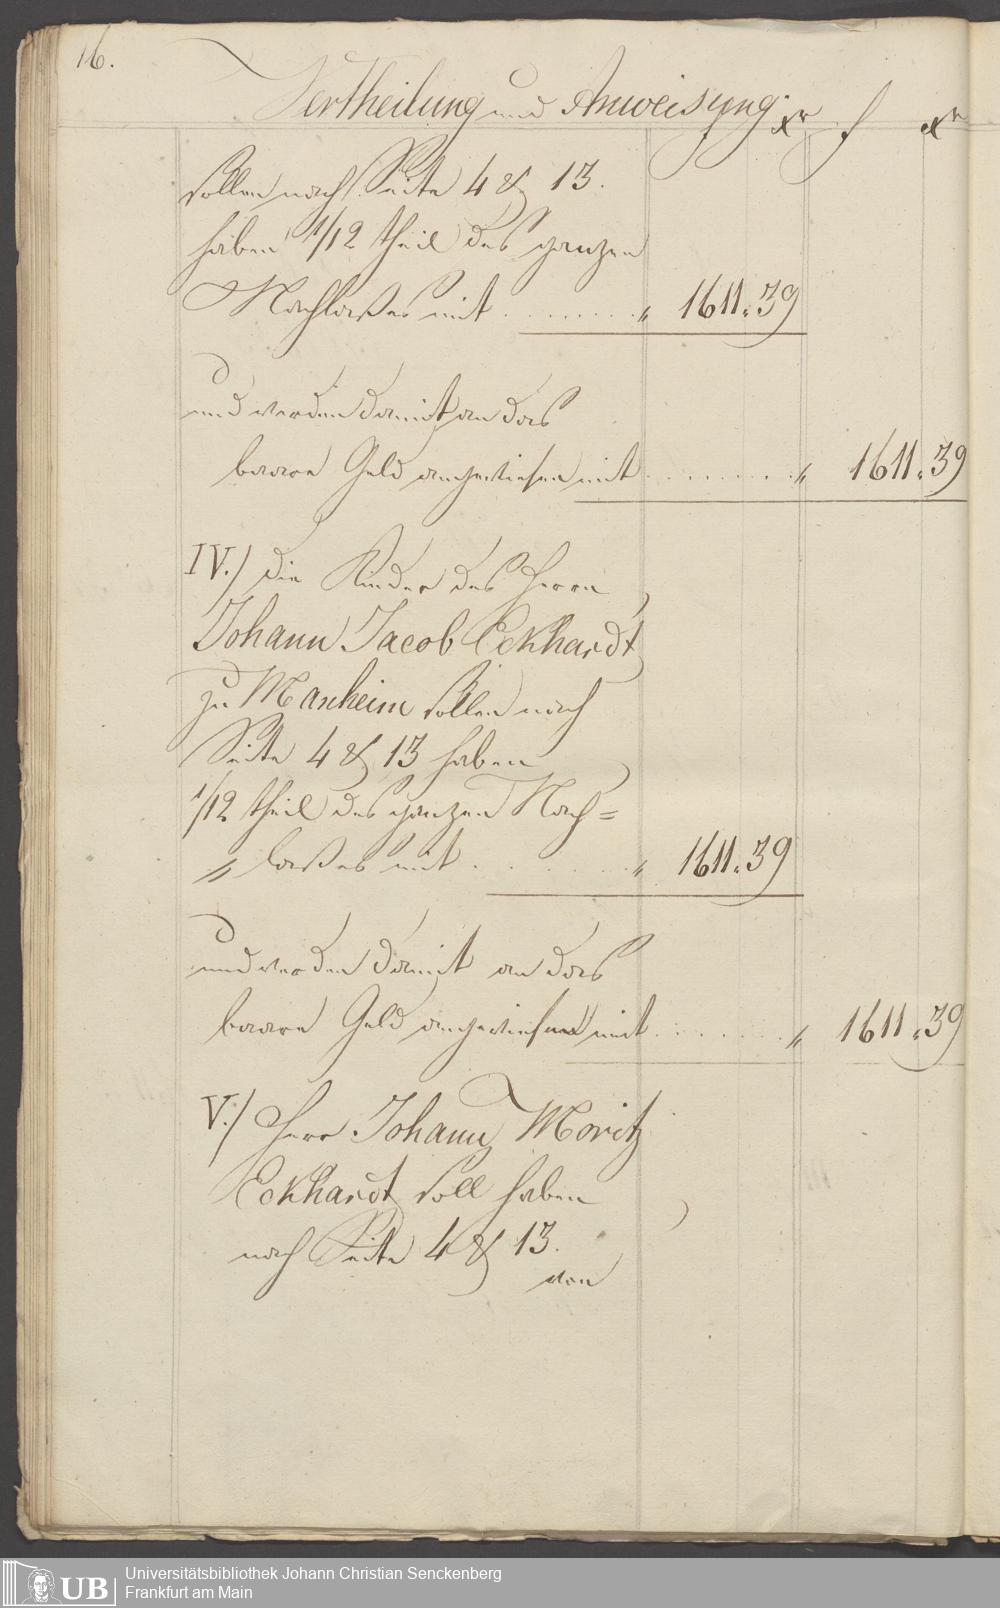 16.
Vertheilung und Anweisung. f xr f xr
sollen nach Seite 4 & 13.
haben 1/12 theil des ganzen
Nachlaßes mit . . . . . . . . " 1611. 39
und werden damit an das
baare Geld angewiesen mit . . . . . . . . " 1611. 39
IV.) die Kinder des Herrn
Johann Jacob Eckhardt
zu Manheim sollen nach
Seite 4 & 13 haben
1/12 theil des ganzen Nach=
" laßes mit . . . . . . . " 1611. 39
und werden damit an das
baare Geld angewiesen mit . . . . . . . " 1611. 39
V.) Herr Johann Moritz
Eckhardt soll haben
nach Seite 4 & 13.
von
UB Universitätsbibliothek Johann Christian Senckenberg
Frankfurt am Main